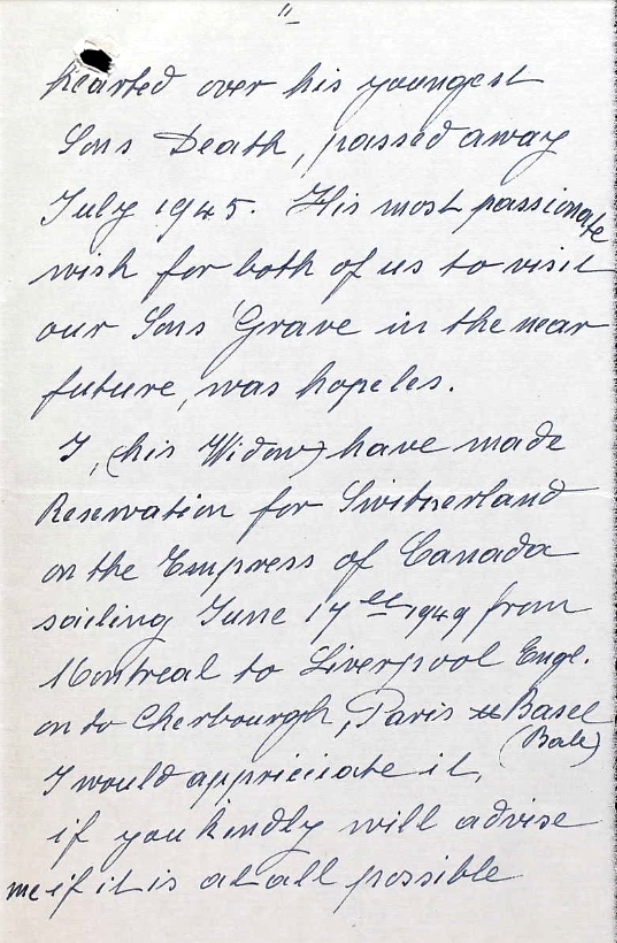 "
hearted over his youngest
Sons Death, passed away
July 1945. His most passionate
wish for both of us to visit
our Sons' Grave in the near
future, was hopeles.
I, (his Widow) have made
Reservation for Switzerland
on the Empress of Canada
sailing June 17th 1949 from
Montreal to Liverpool Engl.
on to Cherbourgh, Paris Basel
(Bale)
I would appriciate it,
if you kindly will advise
me if it is at all possible